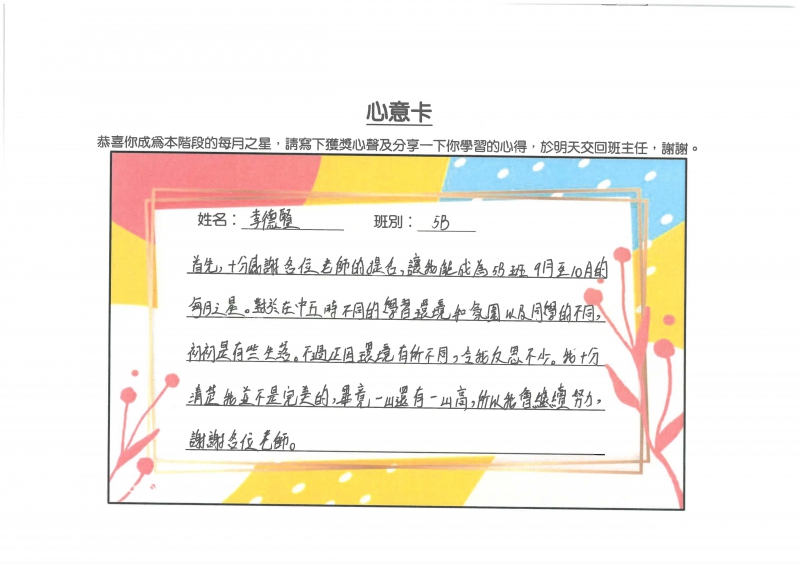 心意卡
恭喜你成為本階段的每月之星，請寫下獲獎心聲及分享一下你學習的心得，於明天交回班主任，謝謝。
姓名： 李德賢 班別： 5B
首先，十分感謝各位老師的提名，讓我能成為5B班 9月至10月的
每月之星。對於在中五時不同的學習環境和氛圍以及同學的不同，
初初是有些失落。不過正因環境有所不同，令我反思不少。我十分
清楚我並不是完美的，畢竟一山還有一山高，所以我會繼續努力，
謝謝各位老師。